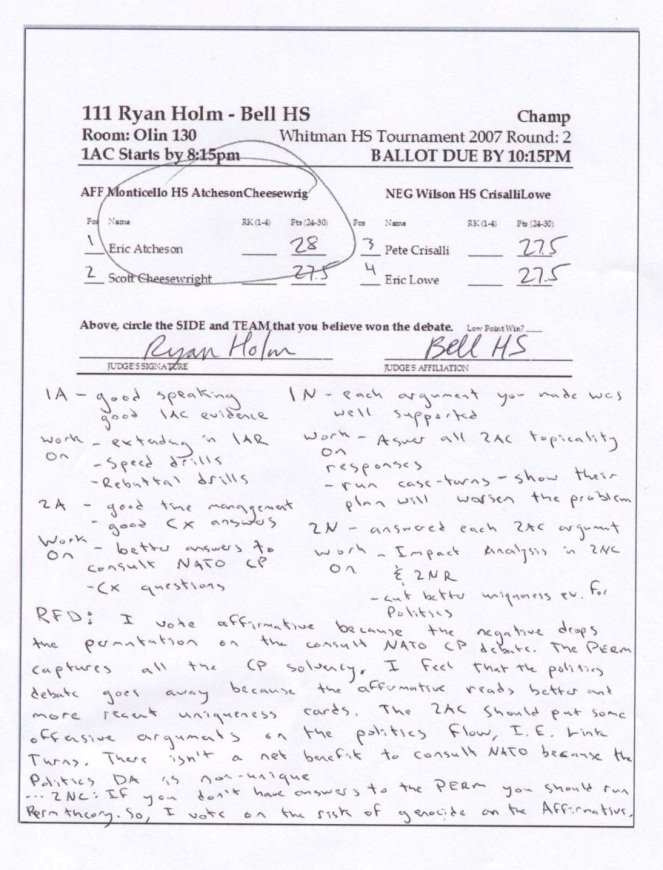 111 Ryan Holm - Bell HS Champ
Room: Olin 130 Whitman HS Tournament 2007 Round: 2
1AC Starts by 8:15pm BALLOT DUE BY 10:15PM
AFF Monticello HS AtchesonCheesewrig NEG Wilson HS CrisalliLowe
Pos Name RK (1-4) Pts (24-30) Pos Name RK (1-4) Pts (24-30)
1 Eric Atcheson 28 3 Pete Crisalli 27.5
2 Scott Cheesewright 27.5 4 Eric Lowe 27.5
Above, circle the SIDE and TEAM that you believe won the debate. Low Point Win? ____
Ryan Holm Bell HS
JUDGE'S SIGNATURE JUDGE'S AFFILIATION
1A - good speaking
good 1AC evidence
work on - extending in 1AR
- Speed drills
- Rebuttal drills
2A - good time management
- good CX answers
Work on - better answers to
consult NATO CP
- CX questions
1N - each argument you made was
well supported
Work on - Aswer all 2AC topicality
responses
- run case-turns - show their
plan will worsen the problem
2N - answered each 2AC argument
work on - Impact Analysis in 2NC
& 2NR
- cut better uniqueness ev. for
Politics
RFD: I vote affirmative because the negative drops
the permutation on the consult NATO CP debate. The PERM
captures all the CP solvency. I feel that the politics
debate goes away because the affirmative reads better and
more recent uniqueness cards. The 2AC should put some
offensive arguments on the politics flow, I.E. Link
Turns. There isn't a net benefit to consult NATO because the
Politics DA is non-unique
... 2NC: If you don't have answers to the PERM you should run
Perm theory. So, I vote on the risk of genocide on the Affirmative.